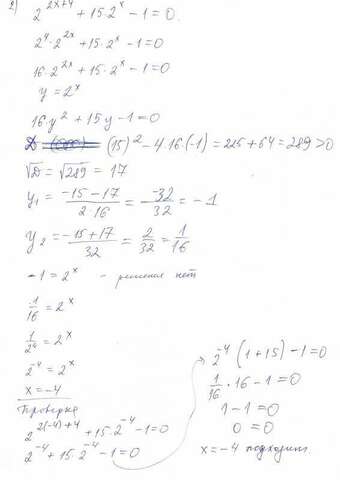 2) 2^{2x+4} + 15·2^x − 1 = 0.
2^4 · 2^{2x} + 15·2^x − 1 = 0
16·2^{2x} + 15·2^x − 1 = 0
y = 2^x
16y^2 + 15y − 1 = 0
D = (15)^2 − 4·16·(−1) = 225 + 64 = 289 > 0
√D = √289 = 17
y_1 = \frac{−15−17}{2·16} = \frac{−32}{32} = −1
y_2 = \frac{−15+17}{32} = \frac{2}{32} = \frac{1}{16}
−1 = 2^x – решения нет
\frac{1}{16} = 2^x
\frac{1}{2^4} = 2^x
2^{−4} = 2^x
x = −4
Проверка
2^{2(−4)+4} + 15·2^{−4} − 1 = 0
2^{−4} + 15·2^{−4} − 1 = 0
2^{−4} (1+15) − 1 = 0
\frac{1}{16} · 16 − 1 = 0
1 − 1 = 0
0 = 0
x = −4 подходит.